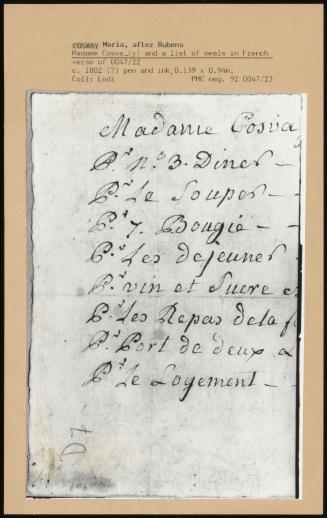 COSWAY Maria, after Rubens
Madame Cosva_(y) and a list of meals in French
verso of 0047/22
c. 1802 (?) pen and ink, 0.139 x 0.94m.
Coll: Lodi PMC neg. 92 0047/23
Madame Cosva
P.r N.o 3. Diner —
P.r Le Souper —
P.r 7. Bougie — -
P.r Les dejeuner -
P.r vin et Sucre e
P.r Les Repas de la f
P.r Port de deux
P.r Le Logement — -